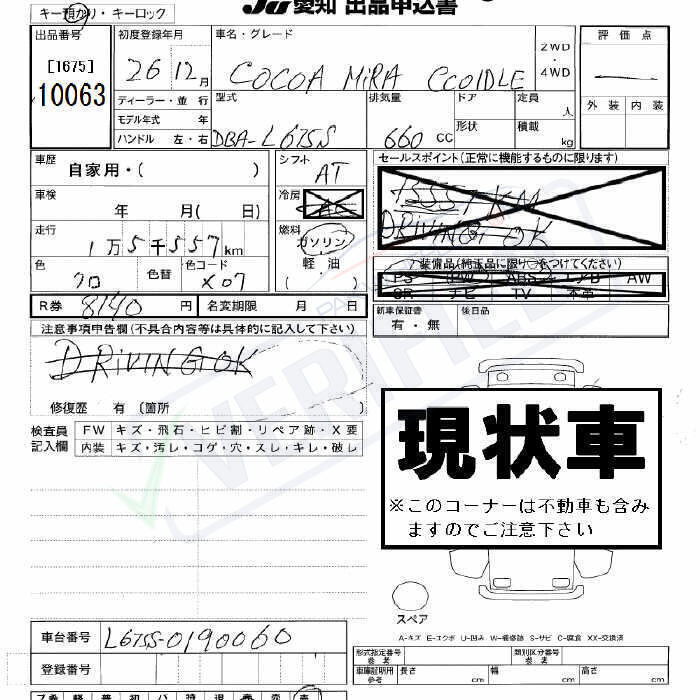 キー預かり・キーロック
JU愛知 出品申込書
出品番号
[1675]
10063
初度登録年月
26 12月
車名・グレード
COCOA MiRA CCOIDLE
2WD
・
4WD
評価点
外装 内装
ディーラー・並行
モデル年式 年
ハンドル 左・右
型式
DBA-L675S
排気量
660 CC
ドア
形状
定員
人
積載
kg
車歴
自家用・( )
シフト
AT
冷房
AC
車検
年 月( 日)
走行
1万5千557km
燃料
ガソリン
・
軽油
( )
色
色替
色コード
X07
R券 8140 円
名変期限 月 日
セールスポイント(正常に機能するものに限ります)
15557KM
DRiVING OK
装備品(純正品に限り○をつけてください)
PS PW ABS エアB AW
SR ナビ TV 本革
新車保証書
有・無
後日品
注意事項申告欄(不具合内容等は具体的に記入して下さい)
DRiVING OK
修復歴 有(箇所 )
検査員
記入欄
FW キズ・飛石・ヒビ割・リペア跡・X要
内装 キズ・汚レ・コゲ・穴・スレ・キレ・破レ
VERIFIED
現状車
※このコーナーは不動車も含み
ますのでご注意下さい
スペア
A-キズ E-エクボ U-凹み W-補修跡 S-サビ C-腐食 XX-交換済
車台番号 L675S-0190060
登録番号
型式指定番号
類別区分番号
車庫証明用
参考
長さ cm 幅 cm 高さ cm